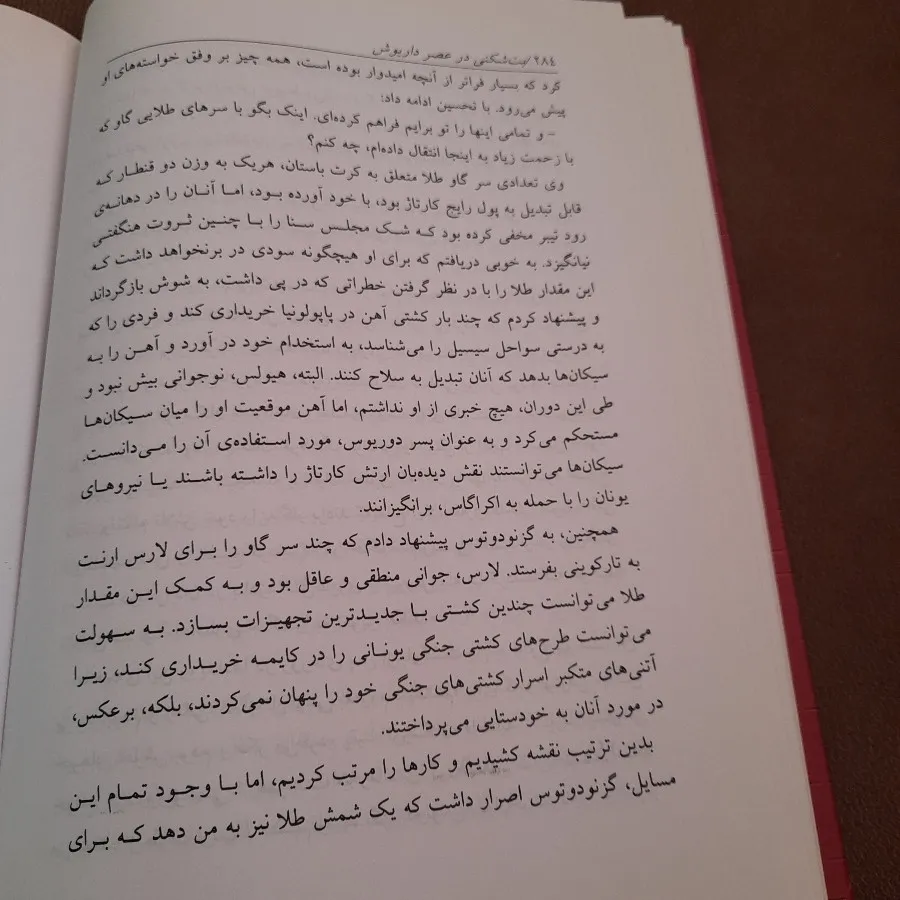 ۲۸٤/بت‌شکنی در عصر داریوش
کرد که بسیار فراتر از آنچه امیدوار بوده است، همه چیز بر وفق خواسته‌های او
پیش می‌رود. با تحسین ادامه داد:
- و تمامی اینها را تو برایم فراهم کرده‌ای. اینک بگو با سرهای طلایی گاو که
با زحمت زیاد به اینجا انتقال داده‌ام، چه کنم؟
وی تعدادی سر گاو طلا متعلق به کرت باستان، هریک به وزن دو قنطار که
قابل تبدیل به پول رایج کارتاژ بود، با خود آورده بود، اما آنان را در دهانه‌ی
رود تیبر مخفی کرده بود که شک مجلس سنا را با چنین ثروت هنگفتی
نیانگیزد. به خوبی دریافتم که برای او هیچگونه سودی در برنخواهد داشت که
این مقدار طلا را با در نظر گرفتن خطراتی که در پی داشت، به شوش بازگرداند
و پیشنهاد کردم که چند بار کشتی آهن در پاپولونیا خریداری کند و فردی را که
به درستی سواحل سیسیل را می‌شناسد، به استخدام خود در آورد و آهن را به
سیکان‌ها بدهد که آنان تبدیل به سلاح کنند. البته، هیولس، نوجوانی بیش نبود و
طی این دوران، هیچ خبری از او نداشتم، اما آهن موقعیت او را میان سیکان‌ها
مستحکم می‌کرد و به عنوان پسر دوریوس، مورد استفاده‌ی آن را می‌دانست.
سیکان‌ها می‌توانستند نقش دیده‌بان ارتش کارتاژ را داشته باشند یا نیروهای
یونان را با حمله به اکراگاس، برانگیزانند.
همچنین، به گزنودوتوس پیشنهاد دادم که چند سر گاو را برای لارس ارنت
به تارکوینی بفرستد. لارس، جوانی منطقی و عاقل بود و به کمک این مقدار
طلا می‌توانست چندین کشتی با جدیدترین تجهیزات بسازد. به سهولت
می‌توانست طرح‌های کشتی جنگی یونانی را در کایمه خریداری کند، زیرا
آتنی‌های متکبر اسرار کشتی‌های جنگی خود را پنهان نمی‌کردند، بلکه، برعکس،
در مورد آنان به خودستایی می‌پرداختند.
بدین ترتیب نقشه کشیدیم و کارها را مرتب کردیم، اما با وجود تمام این
مسایل، گزنودوتوس اصرار داشت که یک شمش طلا نیز به من دهد که برای